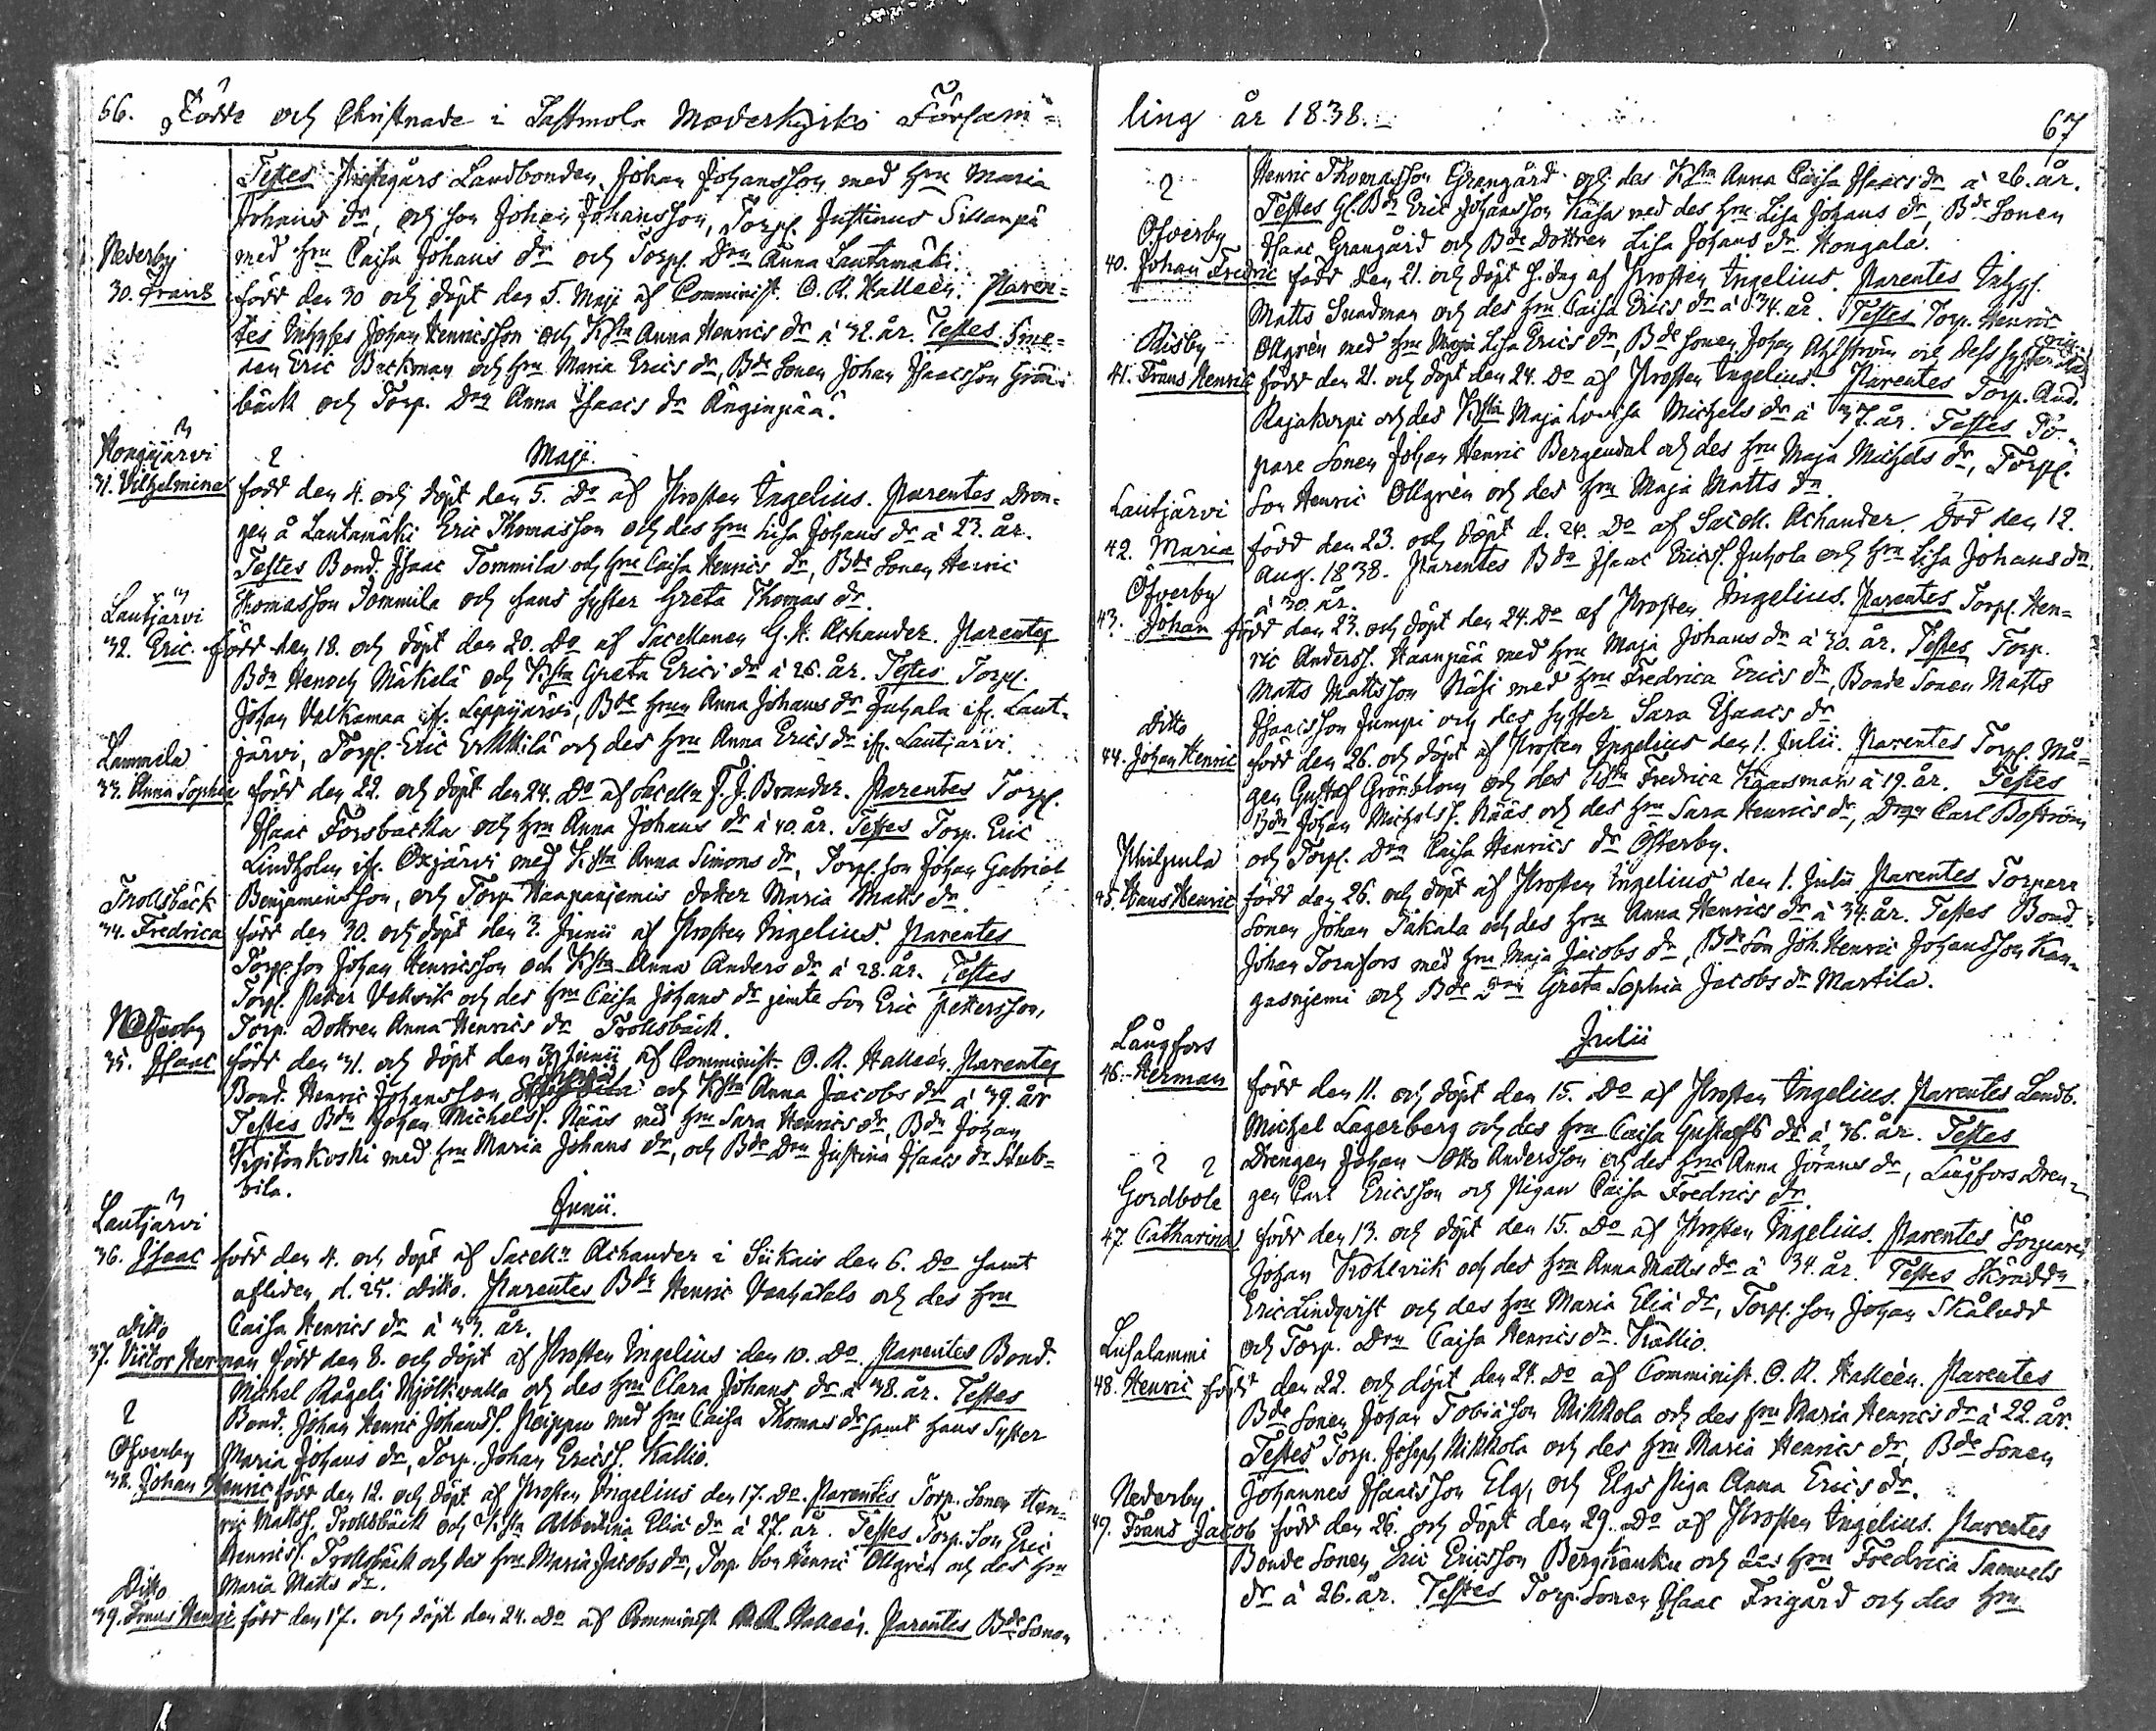 66. Födde och Christnade i Sastmola Moderkyrko Försam=
Testes Prestgårs Landbonden Johan Johansson med hru Maria
Johans dr, och son Johan Johansson, Torp. Justinus Sillanpä
Nederby
med hru Caisa Johans dr och Torp. Drn Anna Lautamäki.
30. Frans född den 30 och döpt den 5. Maji af Comminist. O. R. Halleèn. Paren=
tes Inhyses Johan Henricsson och Hstu Anna Henrics dr à 32. år. Testes Sme=
den Eric Backman och hru Maria Erics dr, Bde Sonen Johan Isacsson Grön=
bäck och Torp. Drn Anna Isaacs dr Änginpää.
Kongijärvi
Maji.
31. Vilhelmina född den 4. och döpt den 5. Do af Prosten Ingelius. Parentes Dren=
gen å Lautamäki Eric Thomasson och des hru Lisa Johans dr à 23. år.
Testes Bond. Isaac Tommila och hru Caisa Henrics dr, Bde Sonen Henric
Thomasson Tommila och hans syster Greta Thomas dr.
Lautjärvi
32. Eric född den 18. och döpt den 20. Do af Sacellanen G. H. Achander. Parentes
Bdn Henoch Mäkelä och Hstu Greta Erics dr à 26. år. Testes Torp.
Johan Valkamaa if. Leppijärvi, Bde hrun Anna Johans dr Juhala if. Laut=
järvi, Torp. Eric Erkkilä och des hru Anna Erics dr if. Lautjärvi.
Lammela
33. Anna Sophia född den 22. och döpt den 24. Do af Sacelln F. J. Brander. Parentes Torp.
Isaac Forsbacka och hru Anna Johans dr à 40. år. Testes Torp. Eric
Lindholm if. Oxjärvi med Hstu Anna Simons dr, Torp. son Johan Gabriel
Trollsbäck
Benjaminsson, och Torp. Haapanjemis dotter Maria Matts dr.
34. Fredrica född den 30. och döpt den 3. Junii af Prosten Ingelius. Parentes
Torp. son Johan Henricsson och Hstu Anna Anders dr à 28. år. Testes
Torp. Petter Vallvik och des hru Caisa Johans dr jemte Son Eric Pettersson,
Torp. Dottren Anna Henrics dr Trollsbäck.
35. Isaac född den 31. och döpt den 3 Junii af Comminist. O. R. Halleèn. Parentes
Bond. Henric Johansson och Hstu Anna Jacobs dr à 39. år
Testes Bdn Johan Michelss. Nääs med hru Sara Henrics dr, Bdn Johan
med hru Maria Johans dr, och Bde Drn Justina Isaacs dr Stub=
bila.
Lautjärvi
Junii.
36. Isaac född den 4. och döpt af Sacelln Achander i Siikais den 6. Do samt
afliden d. 25. ditto. Parentes Bdn Henric Vanhatalo och des hru
Caisa Henrics dr à 33. år.
Ditto
37. Victor Herman född den 8. och döpt af Prosten Ingelius den 10. Do Parentes Bond.
Michel Rågeli Mjölkwalla och des hru Clara Johans dr à 38. år. Testes
Bond. Johan Henric Johanss. Peippu med hru Caisa Thomas dr samt hans Syster
Ofverby
Maria Johans dr, Torp. Johan Ericss. Kallio.
38. Johan Henric född den 12. och döpt af Prosten Ingelius den 17. Do. Parentes Torp. Sonen Hen=
ric Matss. Trollsbäck och Hstu Albertina Eliæ dr à 27. år. Testes Torp. Son Eric
Henricss. Trollsbäck och des hru Maria Jacobs dr, Torp. son Henric Ollgrèn och des hru
Maria Matts dr.
Ditto
39. Frans Henric född den 17. och döpt den 24. Do af Comminist. O. R. Halleèn. Parentes Bde Sonen
ling år 1838.
67
Henric Thomasson Grangård och des Hstu Anna Caisa Isaacs dr à 26. år.
Testes Gl. Bdn Eric Johansson Käsa med des hru Lisa Johans dr, Bde Sonen
Ofverby
Isaac Grangård och Bde dottren Lisa Johans dr Kongala.
40. Johan Fredric född den 21. och döpt s. dag af Prosten Ingelius. Parentes Inhys.
Matts Sundman och des hru Caisa Erics dr à 34. år. Testes Torp. Henric
Ollgrèn med hru Maja Lisa Erics dr, Bde Sonen Johan Ahlström och dess syster
41. Frans Henric född den 21. och döpt den 24. Do af Prosten Ingelius. Parentes Torp. And.
Rajakorpi och des Hstu Maja Lovisa Michels dr à 37. år. Testes To=
pare Sonen Johan Henric Bergendal och des hru Maja Michels dr, Torp.
Lautjärvi
Son Henric Ollgrèn och des hru Maja Matts dr
42. Maria född den 23. och döpt d. 24. Do af Sacell. Achander. Död den 12.
Aug. 1838. Parentes Bdn Isaac Ericss. Juhola och hru Lisa Johans dr
Öfverby
à 30. år.
43. Johan född den 23. och döpt den 24. Do af Prosten Ingelius. Parentes Torp. Hen=
ric Anderss. Haanpää med hru Maja Johans dr à 30. år. Testes Torp.
Matts Mattsson Näsi med hru Fredrica Erics dr, Bonde Sonen Matts
Ditto
Isaacsson Jumpi och des syster Sara Isaacs dr
44. Johan Henric född den 26. och döpt af Prosten Ingelius den 1. Julii. Parentes Torp. Må=
gen Gustaf Grönblom och des Hstu Fredrica Kaasman à 19. år. Testes
Bdn Johan Michelss. Nääs och des hru Sara Henrics dr, Drgn Carl Boström
Philpula
och Torp. Drn Caisa Henrics dr Ofverby.
45. Hans Henric född den 26. och döpt af Prosten Ingelius den 1. Julii Parentes Torpare
Sonen Johan Takala och des hru Anna Henrics dr à 34. år. Testes Bond.
Johan Tornfors med hru Maja Jacobs dr, Bde Son Joh. Henric Johansson Kan=
gasnjemi och Bde Greta Sophia Jacobs dr Martila.
Långfors
Julii
46. Herman född den 11. och döpt den 15. Do af Prosten Ingelius. Parentes Landb.
Michel Lagerberg och des hru Caisa Gustafs dr à 36. år. Testes
Drengen Johan Otto Andersson och des hru Anna Jörans dr, Långfors Dren=
Gordbole
gen Carl Ericsson och Pigan Caisa Fredrics dr.
47. Catharina född den 13. och döpt den 15. Do af Prosten Ingelius. Parentes Torparen
Johan Trohlvik och des hru Anna Matts dr à 34. år. Testes Skräddn
Eric Lindqvist och des hru Maria Eliæ dr, Torp. son Johan Skåludd
Lusalammi
och Torp. Drn Caisa Henrics dr Kallio.
48. Henric född den 22. och döpt den 24. Do af Comminist. O. R. Halleèn. Parentes
Bde Sonen Johan Tobiasson Mikkola och des hru Maria Henrics dr à 22. år.
Testes Torp. Joseph Mikkola och des hru Maria Henrics dr, Bde Sonen
Nederby
Johannes Isaacsson Elg, och Elgs Piga Anna Erics dr.
49. Frans Jacob född den 26. och döpt den 29. Do af Prosten Ingelius. Parentes
Bonde Sonen Eric Ericsson Bergiranku och des hru Fredrica Samuels
dr à 26. år. Testes Torp. Sonen Isaac Frigård och des hru